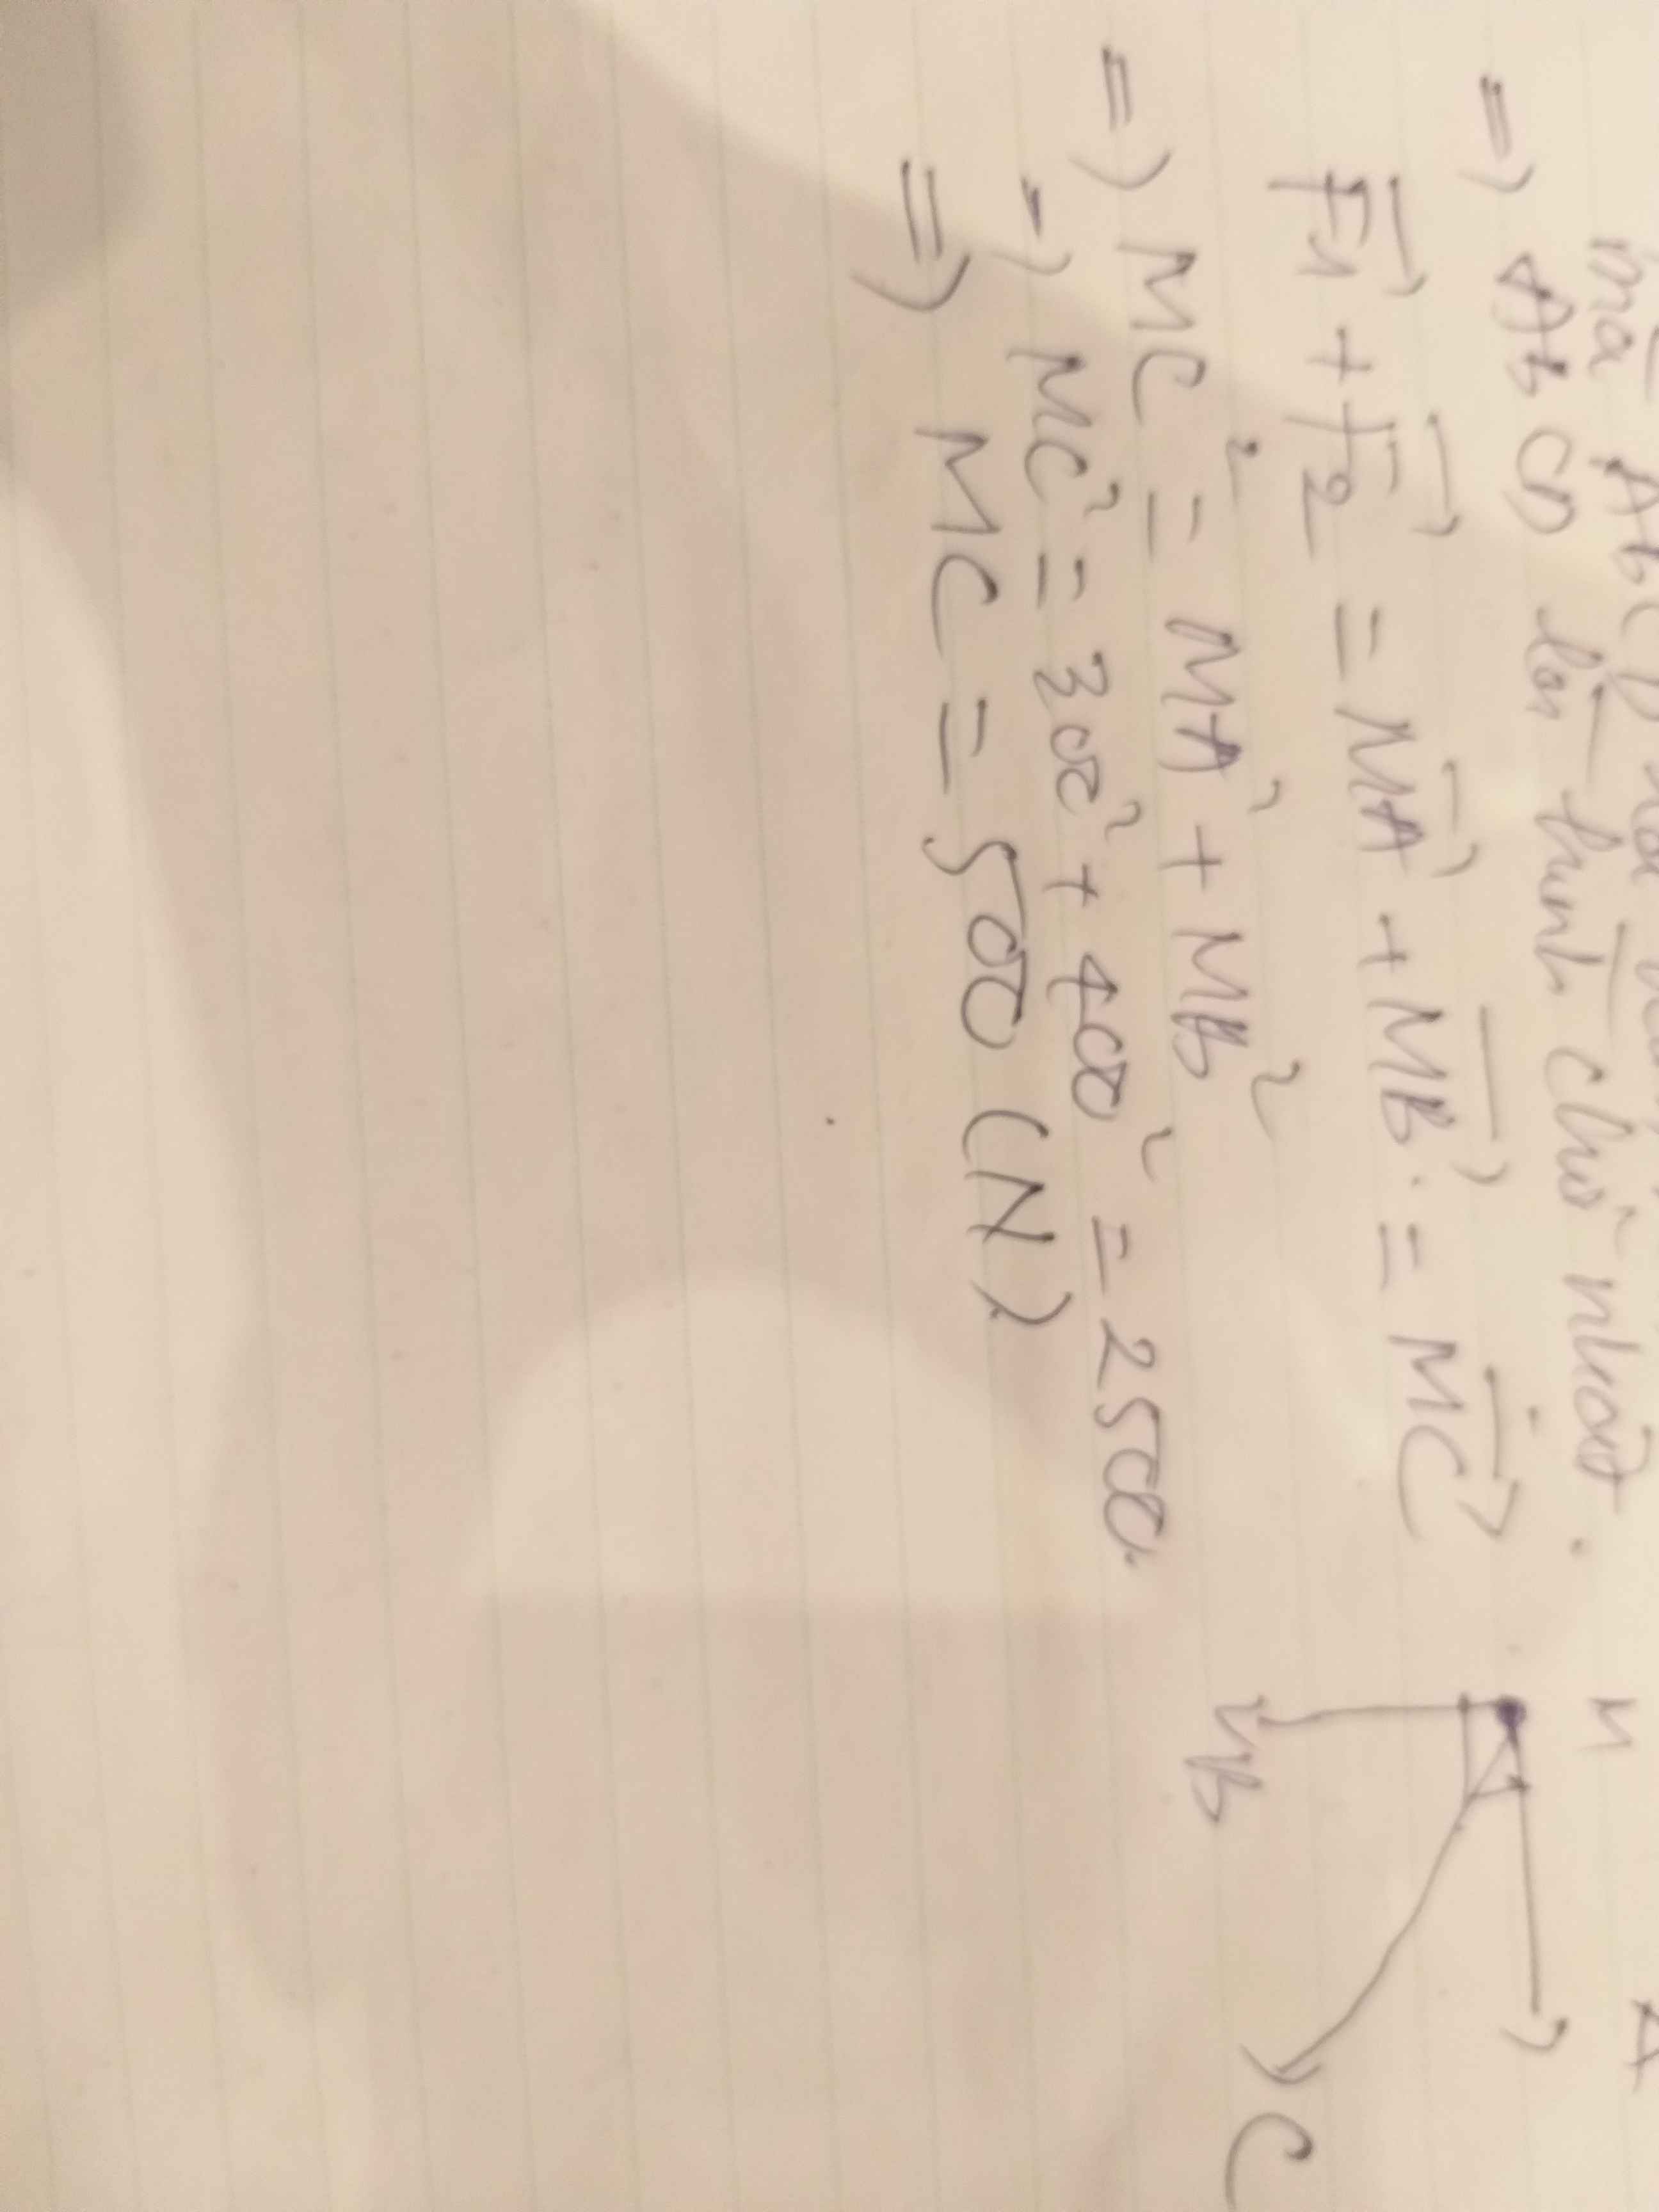 mà ABCD
=) ABCD lại thành chữ nhật.
F1 + F2 = MA + MB = MC
=) MC² = MA² + MB²
=) MC² = 300² + 400² = 2500
=) MC = 500 (N)
M
A
B
C